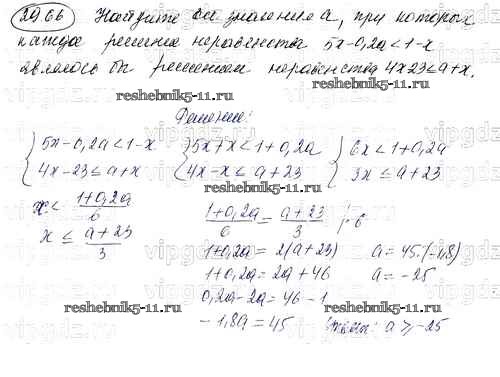 2966 Найдите все значения a, при которых
каждое решение неравенства 5x-0,2a<1-x
являлось бы решением неравенства 4x-23≤a+x.
reshebnik5-11.ru
Решение:
{5x-0,2a<1-x {5x+x<1+0,2a {6x<1+0,2a
{4x-23≤a+x {4x-x≤a+23 {3x≤a+23
x<(1+0,2a)/6 (1+0,2a)/6=(a+23)/3 |·6
x≤(a+23)/3
1+0,2a=2(a+23) a=45:(-1,8)
1+0,2a=2a+46 a=-25
0,2a-2a=46-1
reshebnik5-11.ru reshebnik5-11.ru
-1,8a=45 Ответ: a≥-25